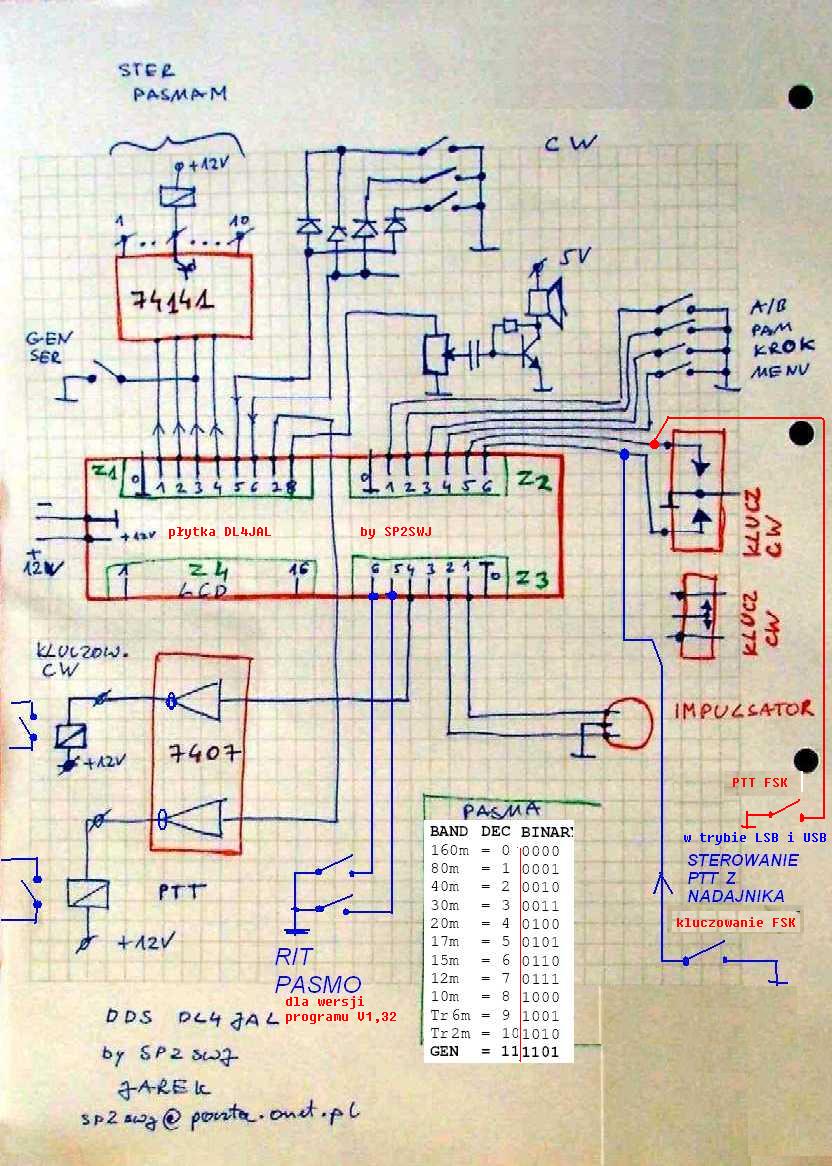 STER
PASMAM
+12V
1
10
74141
GEN
SER
CW
5V
A/B
PAM
KROK
MENU
Z1
0 1 2 3 4 5 6 7 8
0 1 2 3 4 5 6
Z2
-
+12V
płytka DL4JAL
by SP2SWJ
+
12V
1
Z4
16
LCD
6 5 4 3 2 1 0
Z3
KLUCZ
CW
KLUCZ
CW
KLUCZOW.
CW
+12V
7407
IMPULSATOR
PTT FSK
w trybie LSB i USB
STEROWANIE
PTT Z
NADAJNIKA
kluczowanie FSK
PTT
+12V
RIT
PASMO
dla wersji
programu V1,32
PASMA
BAND DEC BINARY
160m = 0 0000
80m = 1 0001
40m = 2 0010
30m = 3 0011
20m = 4 0100
17m = 5 0101
15m = 6 0110
12m = 7 0111
10m = 8 1000
Tr6m = 9 1001
Tr2m = 10 1010
GEN = 11 1101
DDS DL4JAL
by SP2SWJ
JAREK
sp2swj@poczta.onet.pl